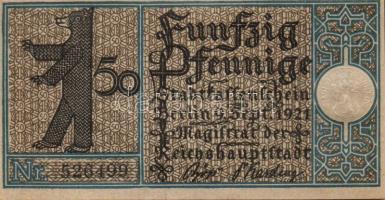 50
Funfzig
Pfennige
Stadtkassenschein
Berlin 9. Sept. 1921
Magistrat der
Reichshauptstadt
Nr. 526499